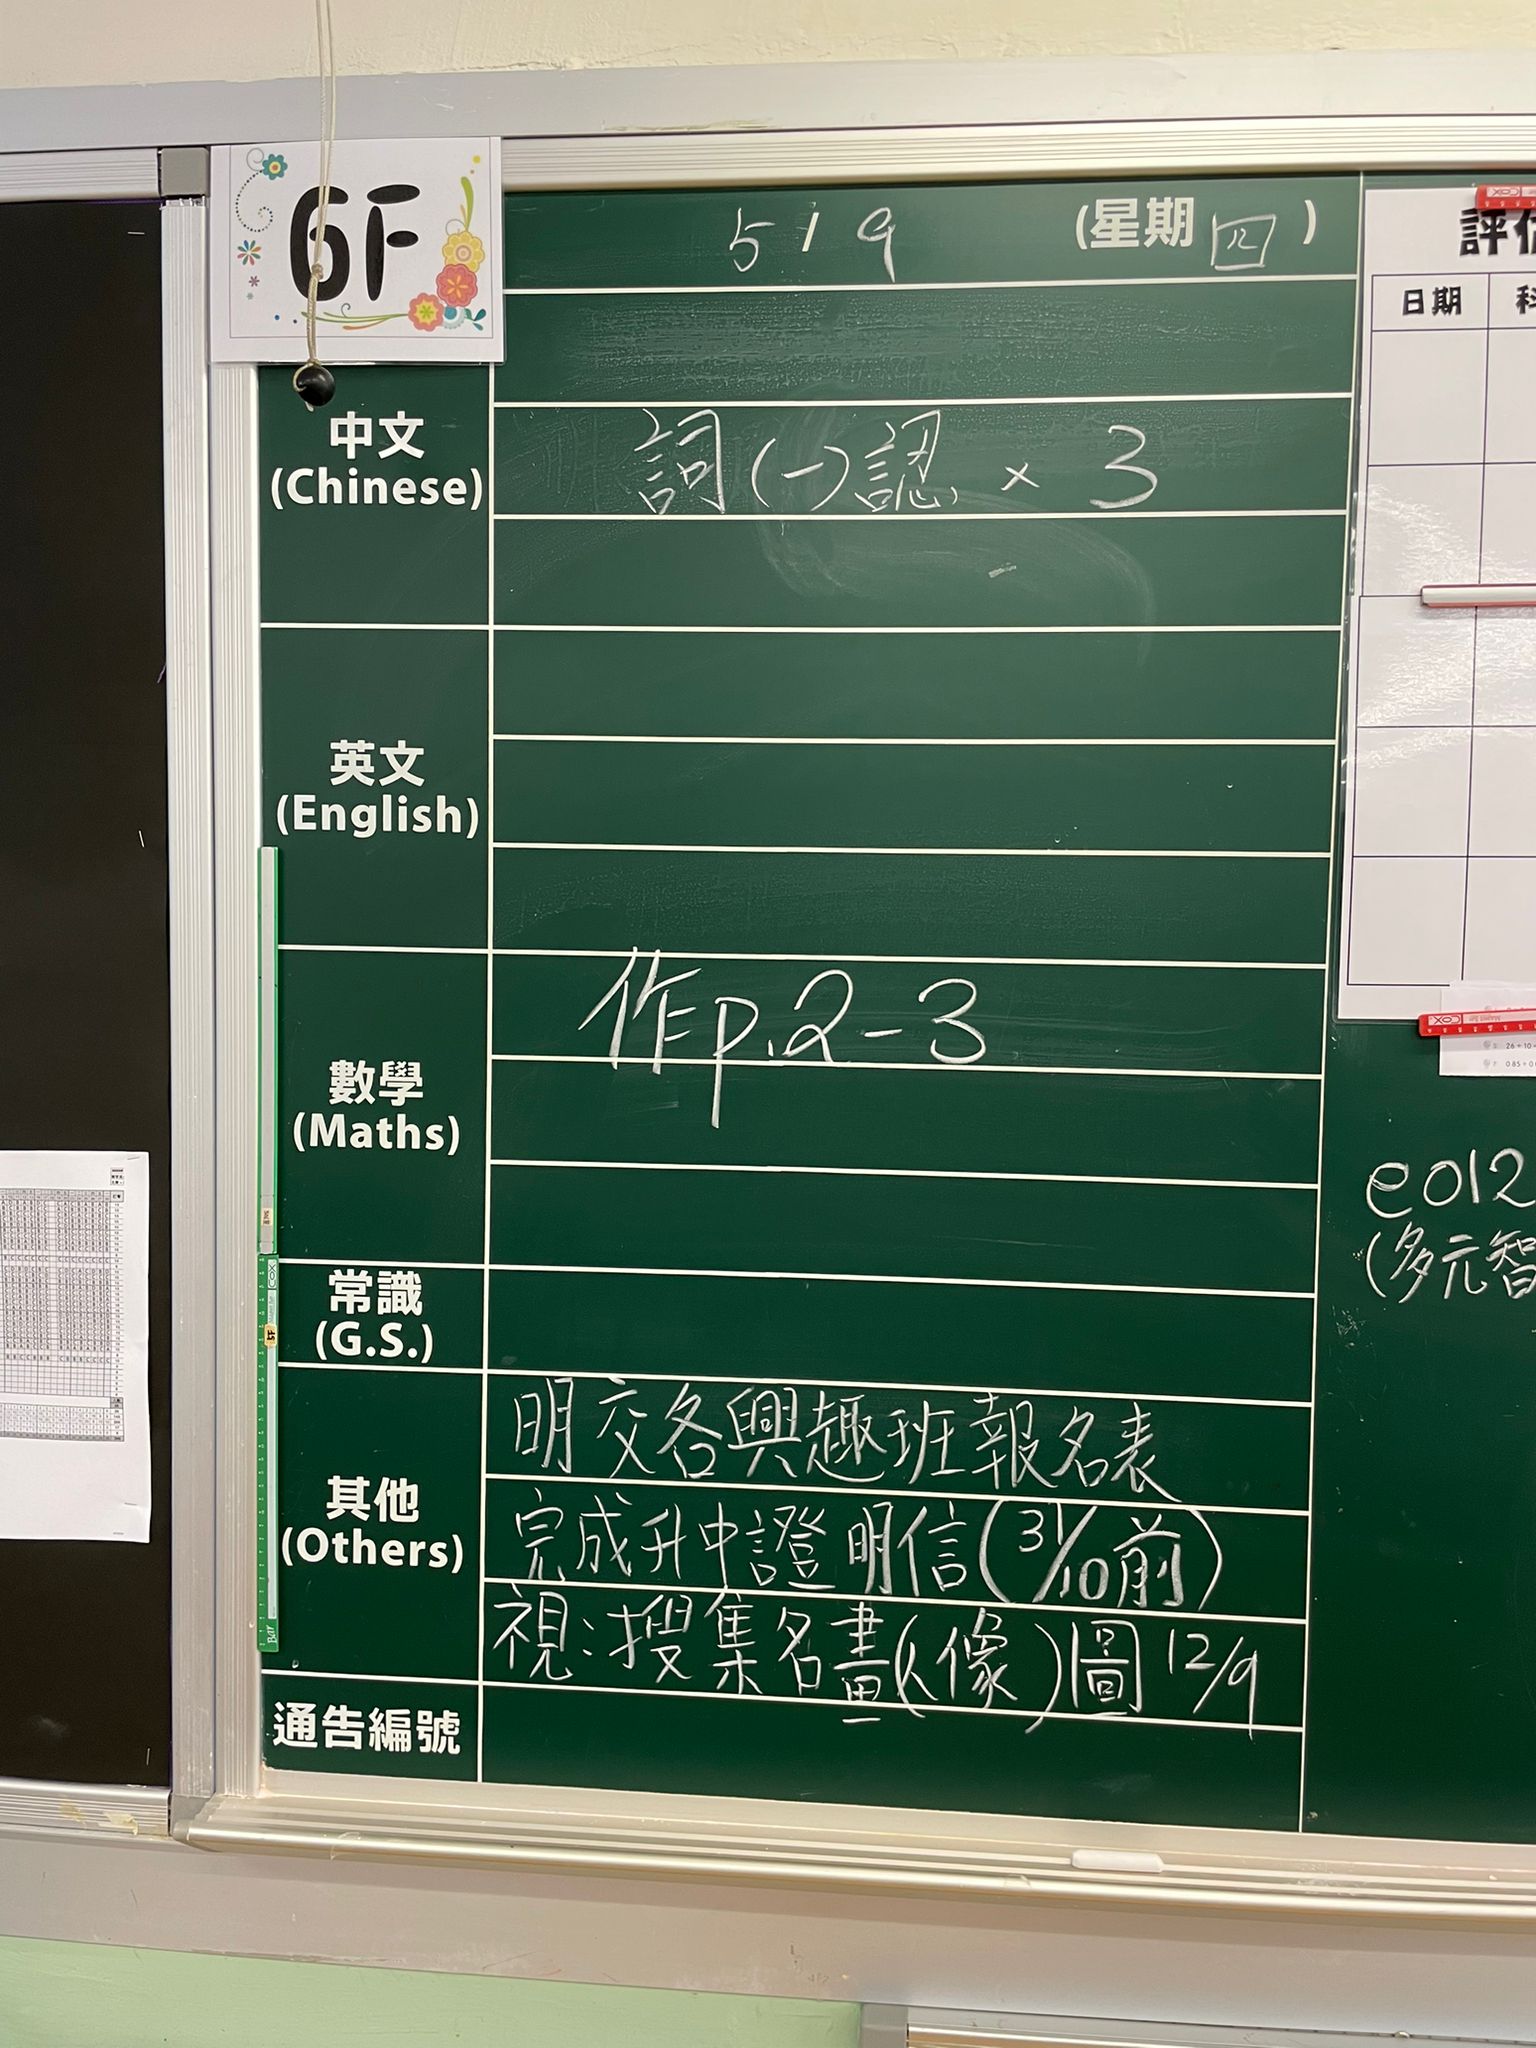 6F
5 / 9 (星期 四 )
評
日期 科
中文
(Chinese)
詞(一)認 × 3
英文
(English)
數學
(Maths)
作p.2-3
常識
(G.S.)
其他
(Others)
明交各興趣班報名表
完成升中證明信(31/10前)
視:搜集名畫(人像)圖 12/9
通告編號
e012
(多元智
COX